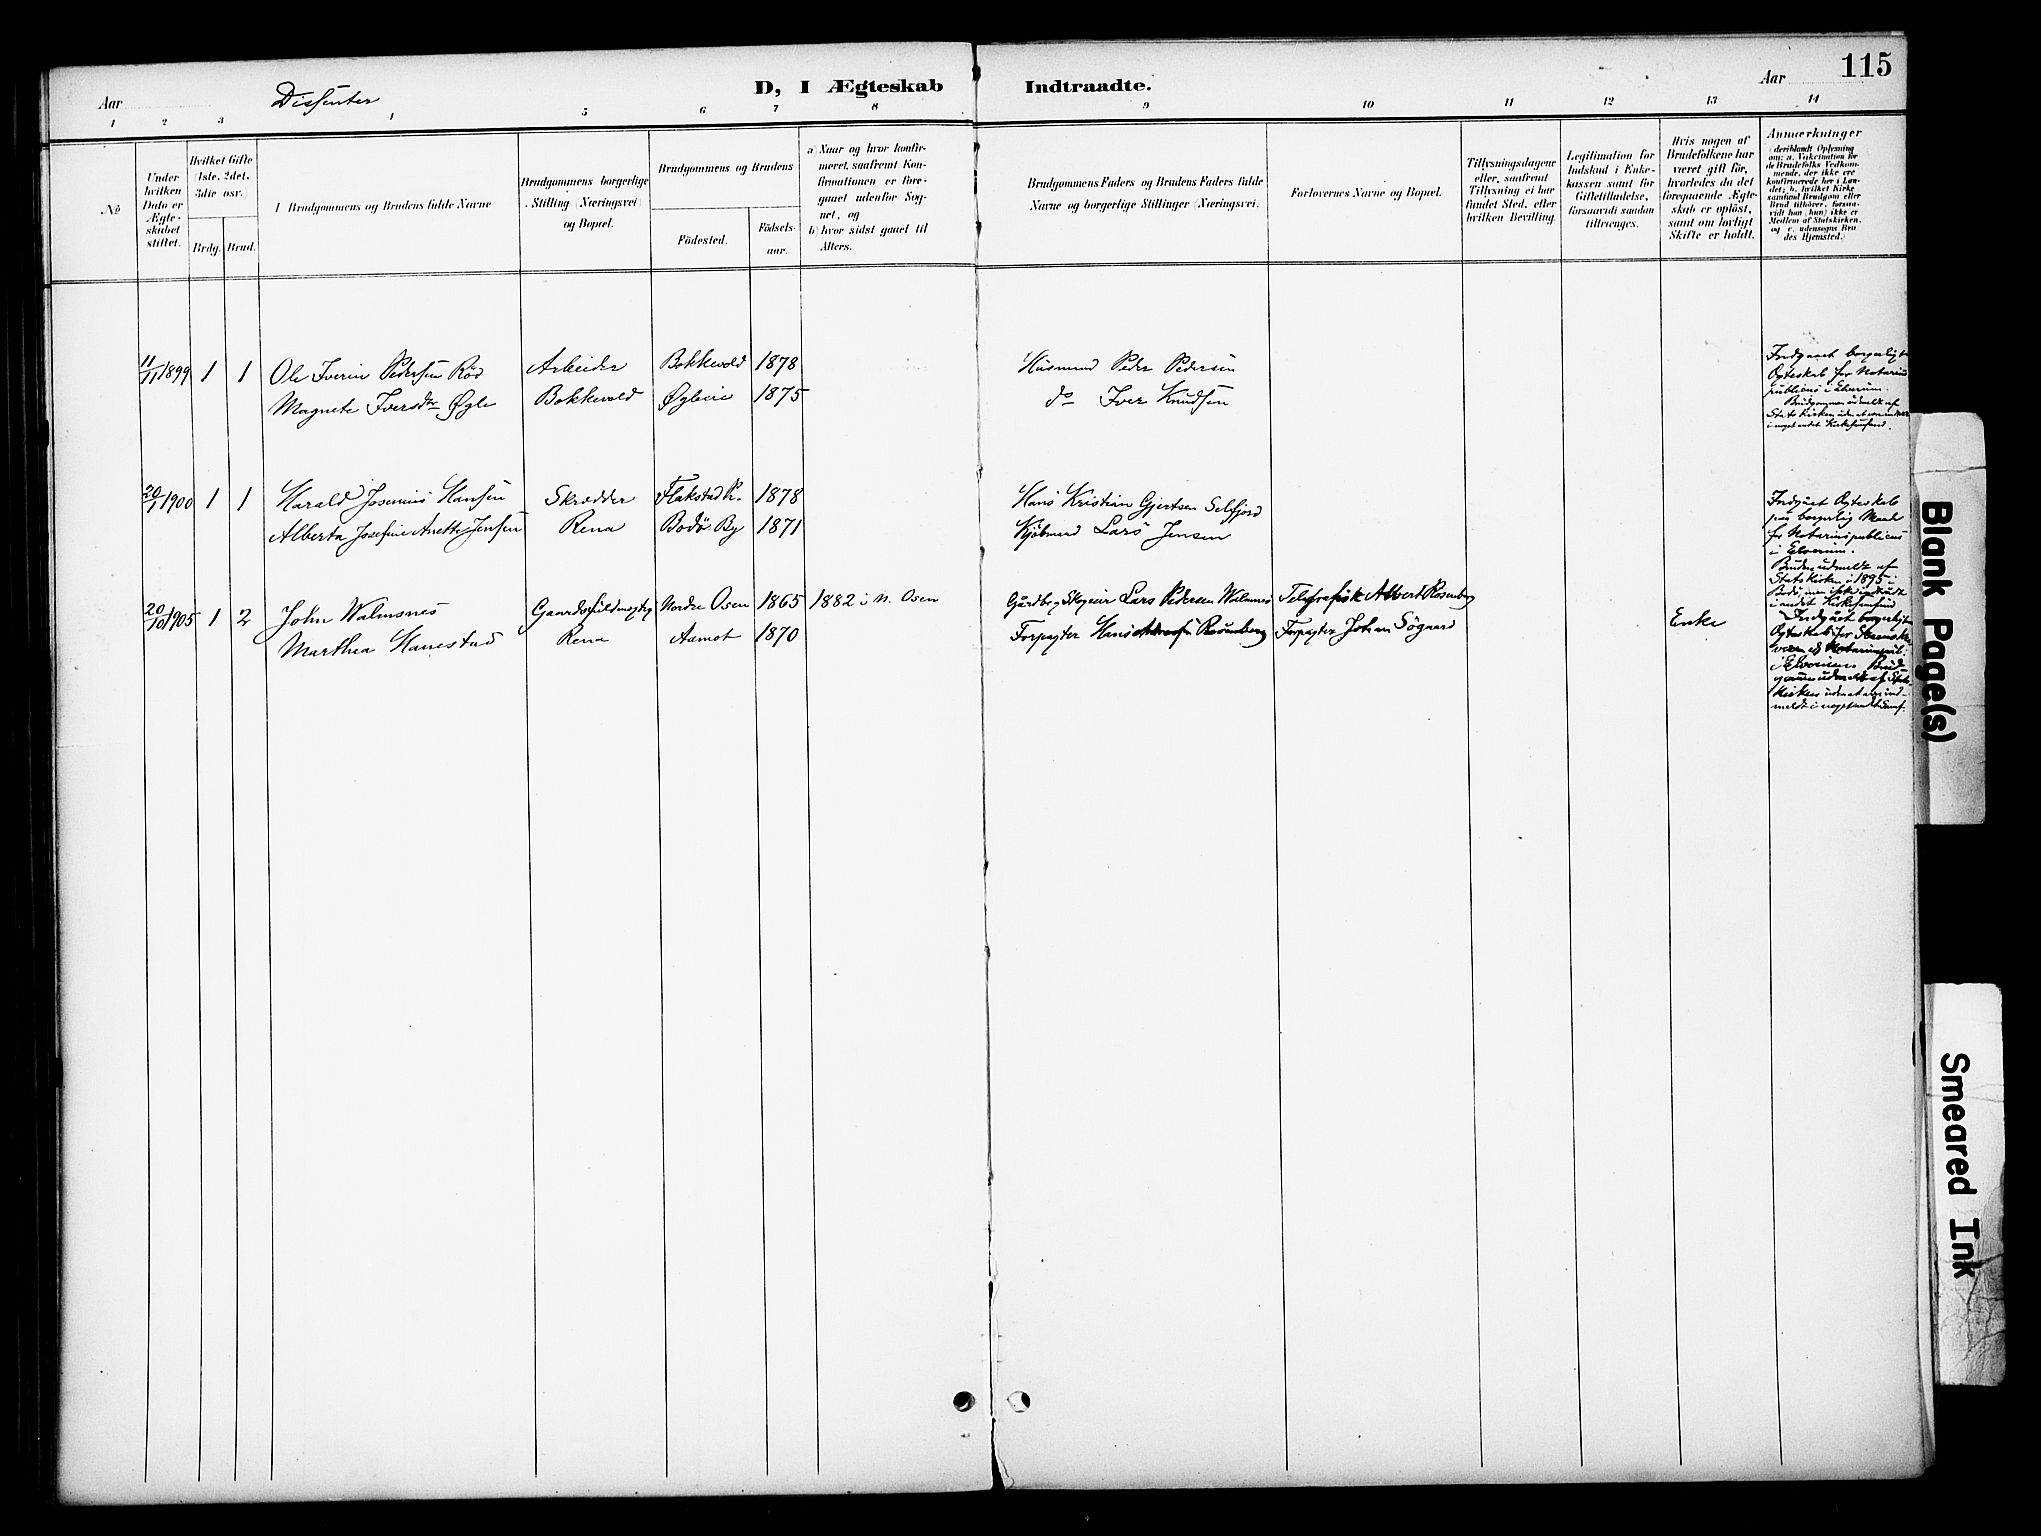 115
Aar
Dissenter
D, I Ægteskab
Indtraadte.
Aar
1 2 3 4 5 6 7 8 9 10 11 12 13 14
No
Under
hvilken
Dato er
Ægte-
skabet
stiftet.
Hvilket Gifte
(1ste, 2det,
3die osv.)
Brdg.
Brud.
Brudgommens og Brudens fulde Navne
Brudgommens borgerlige
Stilling (Næringsvei)
og Bopæl.
Brudgommens og Brudens
Födested.
Födsels-
aar.
a) Naar og hvor konfir-
meret, saafremt Kon-
firmationen er fore-
gaaet udenfor Sog-
net, og
b) hvor sidst gaaet til
Alters.
Brudgommens Faders og Brudens Faders fulde
Navne og borgerlige Stillinger (Næringsvei)
Forlovernes Navne og Bopæl.
Tillysningsdagene
eller, saafremt
Tillysning ei har
fundet Sted, efter
hvilken Bevilling.
Legitimation for
Indskud i Enke-
kassen samt for
Giftetilladelse,
forsaavidt saadan
tiltrænges.
Hvis nogen af
Brudefolkene har
været gift för,
hvorledes da det
foregaaende Ægte-
skab er oplöst,
samt om lovligt
Skifte er holdt.
Anmærkninger
(deriblandt Oplysning
om: a. Vakcination for
de Brudefolks Vedkom-
mende, der ikke ere
konfirmerede her i Lan-
det; b. hvilket Kirke
samfund Brudgom eller
Brud tilhører, forsaa-
vidt han (hun) ikke er
Medlem af Statskirken,
og c. udensogns Bru
des Hjemsted.)
11/11 1899 1 1 Ole Iverin Pedersen Röd Arbeider Bokkevold 1878 Husmand Peder Pedersen
Magnete Iversdtr Øgle Bokkevold Øgleie 1875 do Iver Knudsen
Indgaaet borgerligt
Ægteskab for Notarius
publicus i Elverum.
Brudgommen udmeldt af
Statskirken uden at være indm.
i noget andet Kirkesamfund.
20/1 1900 1 1 Harald Josenius Hansen Skrædder Flakstad P. 1878 Hans Kristian Gjertsen Selfjord
Alberta Josefine Anette Jensen Rena Bodö By 1871 Kjöbmand Lars Jensen
Indgaaet Ægteskab
paa borgerlig Maade
for Notarius publicus
i Elverum.
Bruden udmeldt af
Statskirken i 1895 i
Bodö, men ikke indtraadt
i andet Kirkesamfund
20/10 1905 1 2 John Walmsnes Gaardsfuldmægtig Nordre Osen 1865 1882 i N. Osen Gårdbr. og Skogeier Lars Pedersen Walmsnes Telegrafist Albert Rosenberg
Marthea Hanestad Rena Aamot 1870 Forpagter Hans Rosenberg Forpagter Johan Søgaard Enke
Indgaaet borgerligt
Ægteskab for
Notarius publ.
i Elverum. Brud-
gommen udmeldt af Stats-
kirken uden at være ind-
meldt i noget andet Samf.
Blank Page(s)
Smeared Ink